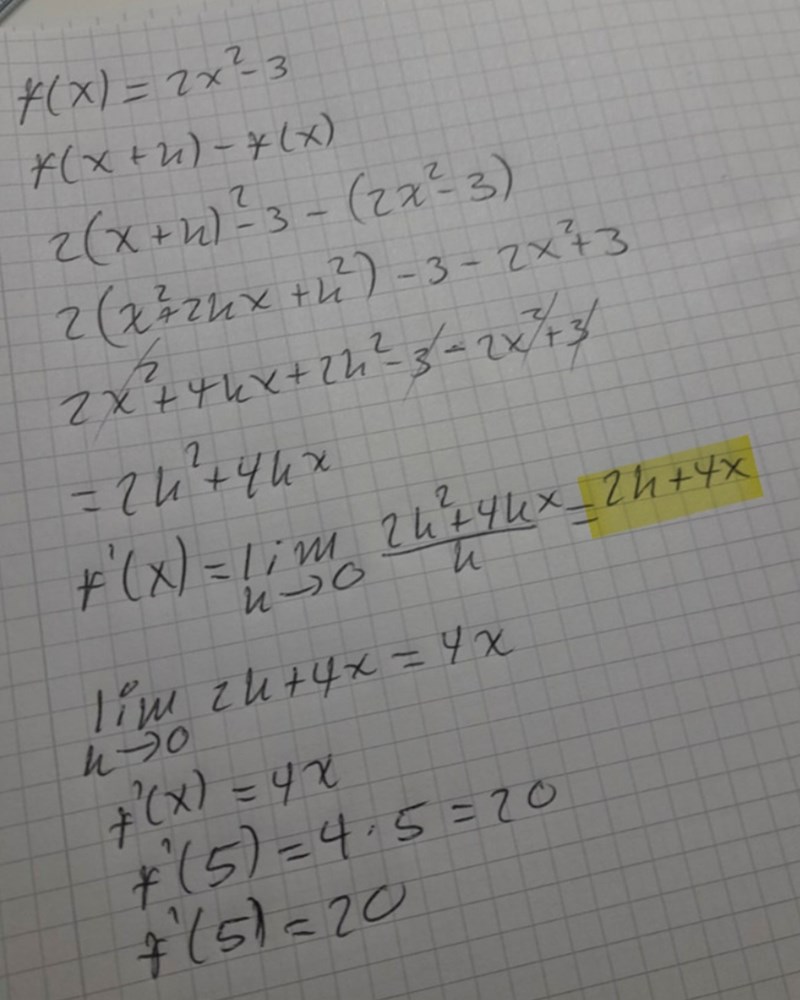 f(x) = 2x²-3
f(x+h) - f(x)
2(x+h)²-3 - (2x²-3)
2(x²+2hx+h²) -3 - 2x²+3
2x²+4hx+2h²-3-2x²+3
= 2h²+4hx
f'(x) = lim h→0 (2h²+4hx)/h = 2h+4x
lim h→0 2h+4x = 4x
f'(x) = 4x
f'(5) = 4·5 = 20
f'(5) = 20